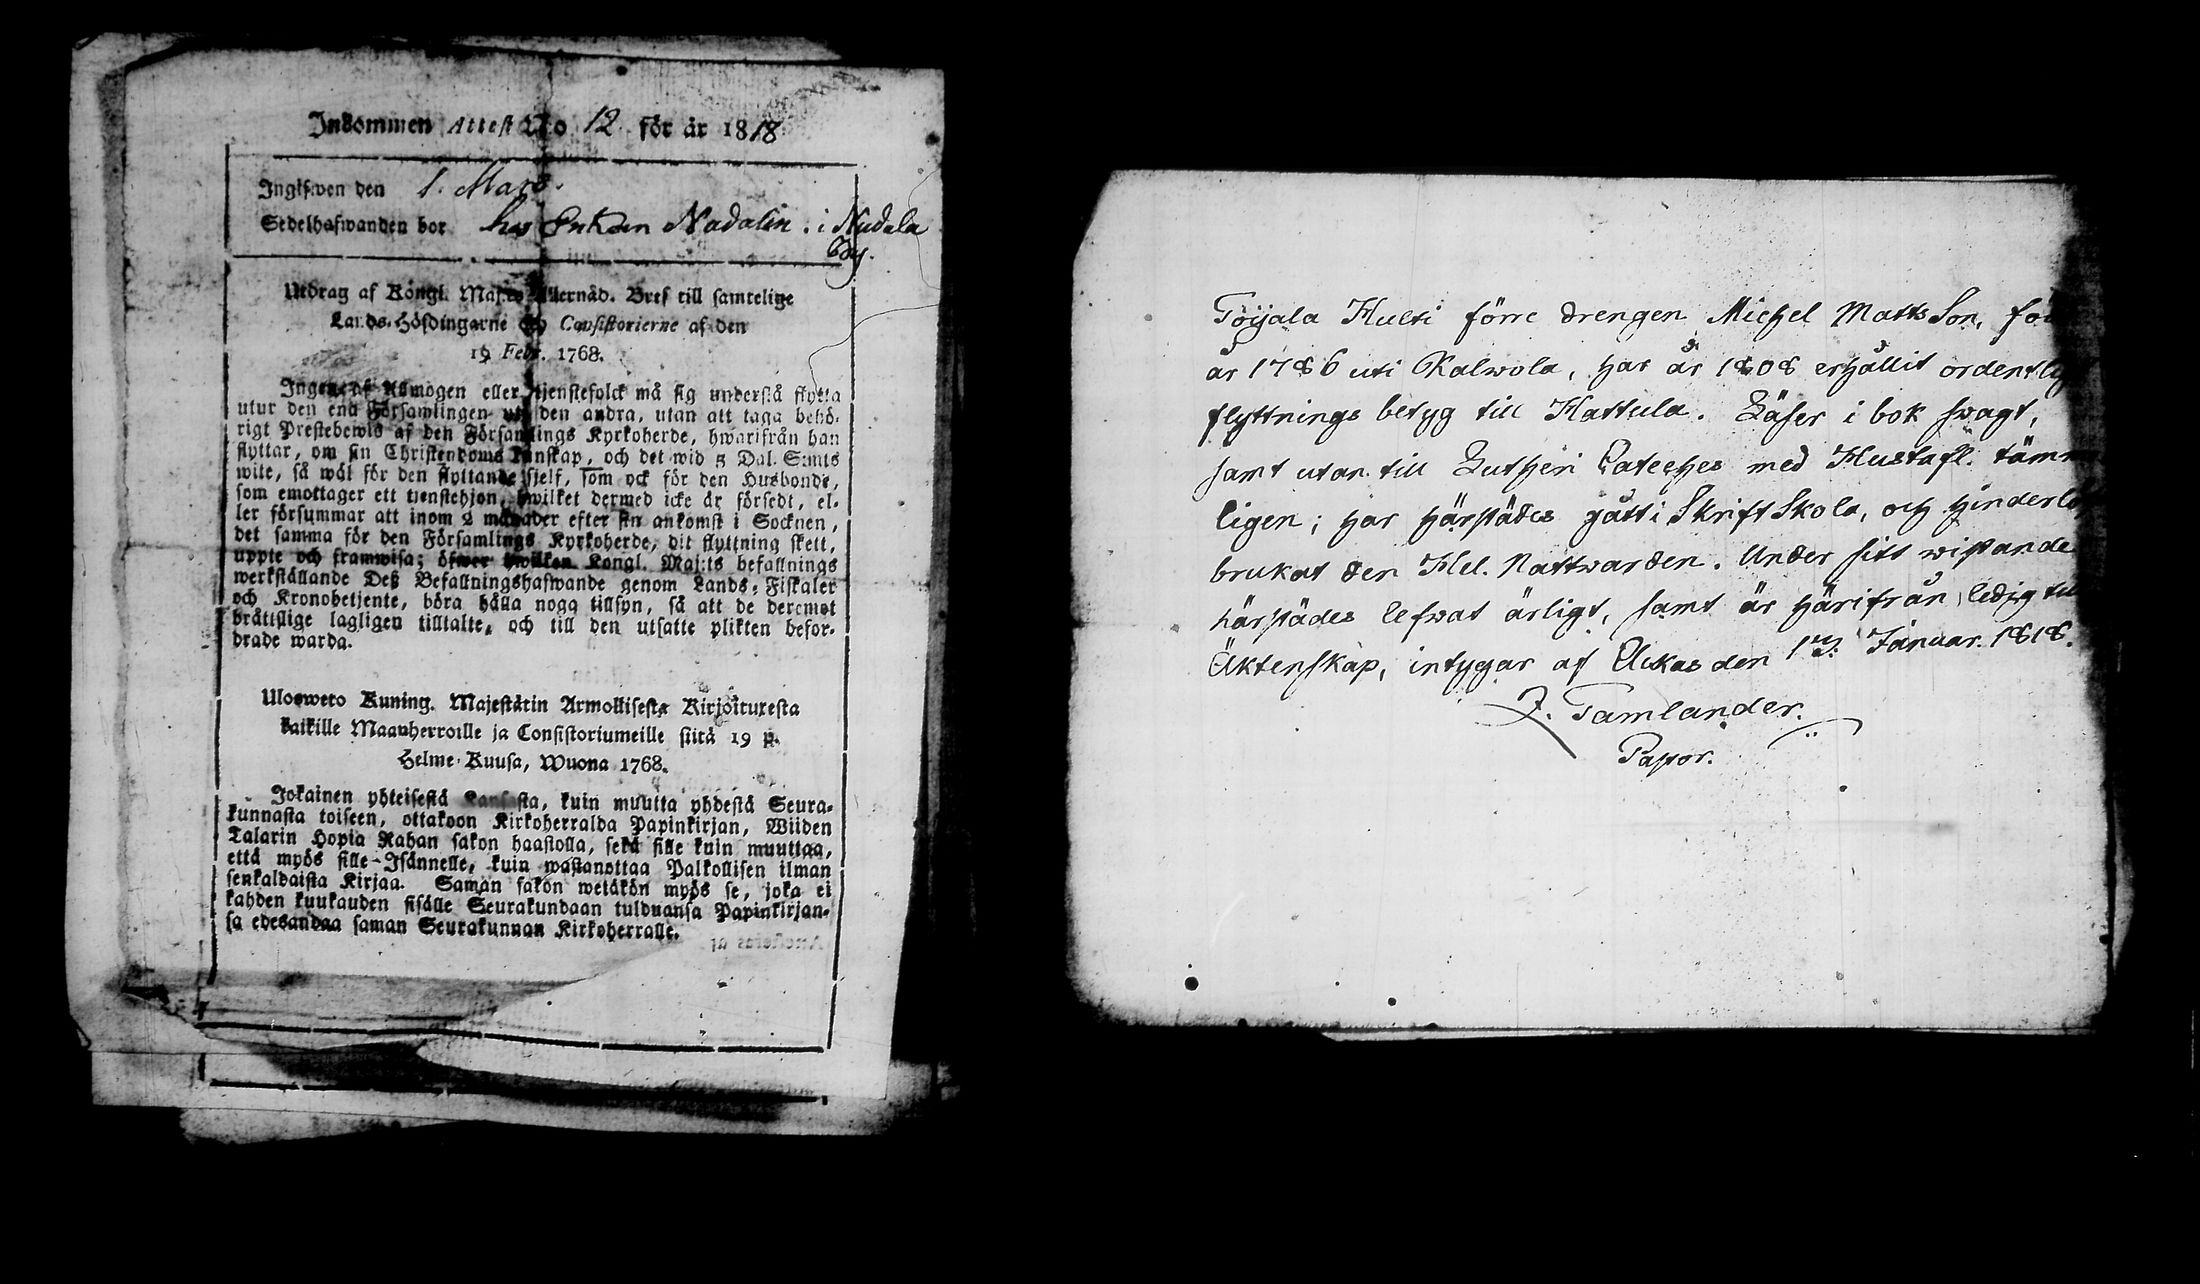 Inkommen Attest N:o 12 för år 1818
Ingifwen den 1. Mars.
Sedelhafwanden bor hos Enkan Nadalin. i Nudala
By.
Utdrag af Kongl. Maj:ts Allernåd. Bref till samtelige
Lands-Höfdingarne och Consistorierne af den
19 Febr. 1768.
Ingen af Allmogen eller tjenstefolck må sig understå flytta
utur den ena Församlingen uti den andra, utan att taga behö-
rigt Prestebewis af den Församlings Kyrkoherde, hwarifrån han
flyttar, om sin Christendoms kunskap, och det wid 5 Dal. S:mts
wite, så wäl för den flyttande sjelf, som ock för den Husbonde,
som emottager ett tienstehjon, hwilket dermed icke är försedt, el-
ler försummar att inom 2 månader efter sin ankomst i Socknen,
det samma för den Församlings Kyrkoherde, dit flyttning skett,
uppte och framwisa; öfwer hwilken Kongl. Maj:ts befallnings
werkställande Deß Befallningshafwande genom Lands-Fiskaler
och Kronobetjente, böra hålla noga tillsyn, så att de deremot
bråttslige lagligen tilltalte, och till den utsatte plikten befor-
drade warda.
Uloswetо Kuning. Majestätin Armollisesta Kirjoituxesta
kaikille Maanherroille ja Consistoriumeille siitä 19 p.
Helme-Kuusa, Wuona 1768.
Jokainen yhteisestä Kansasta, kuin muutta yhdestä Seura-
kunnasta toiseen, ottakoon Kirkoherralda Papinkirjan, Wiiden
Talarin Hopia Rahan sakon haastolla, sekä sille kuin muuttaa,
että myös sille-Isännelle, kuin wastanottaa Palkollisen ilman
senkaldaista Kirjaa. Saman sakon wetäkön myös se, joka ei
kahden kuukauden sisälle Seurakundaan tulduansa Papinkirjan-
sa edesandaa saman Seurakunnan Kirkoherralle.
Töijala Hulti förre drengen Michel Matts Son, föd
år 1786 uti Kalwola, har år 1808 erhållit ordentlig
flyttnings betyg till Hattula. Läser i bok swagt,
samt utan till Lutheri Cateches med Hustafl. tämm
ligen; har härstädes gått i Skrift Skola, och hinderlöst
brukat den Hel. Nattwarden. Under sitt wistande
härstädes lefwat ärligt, samt är härifrån ledig till
Äktenskap, intygar af Uckas den 13. Januar. 1818.
J. Tamlander.
Pastor.